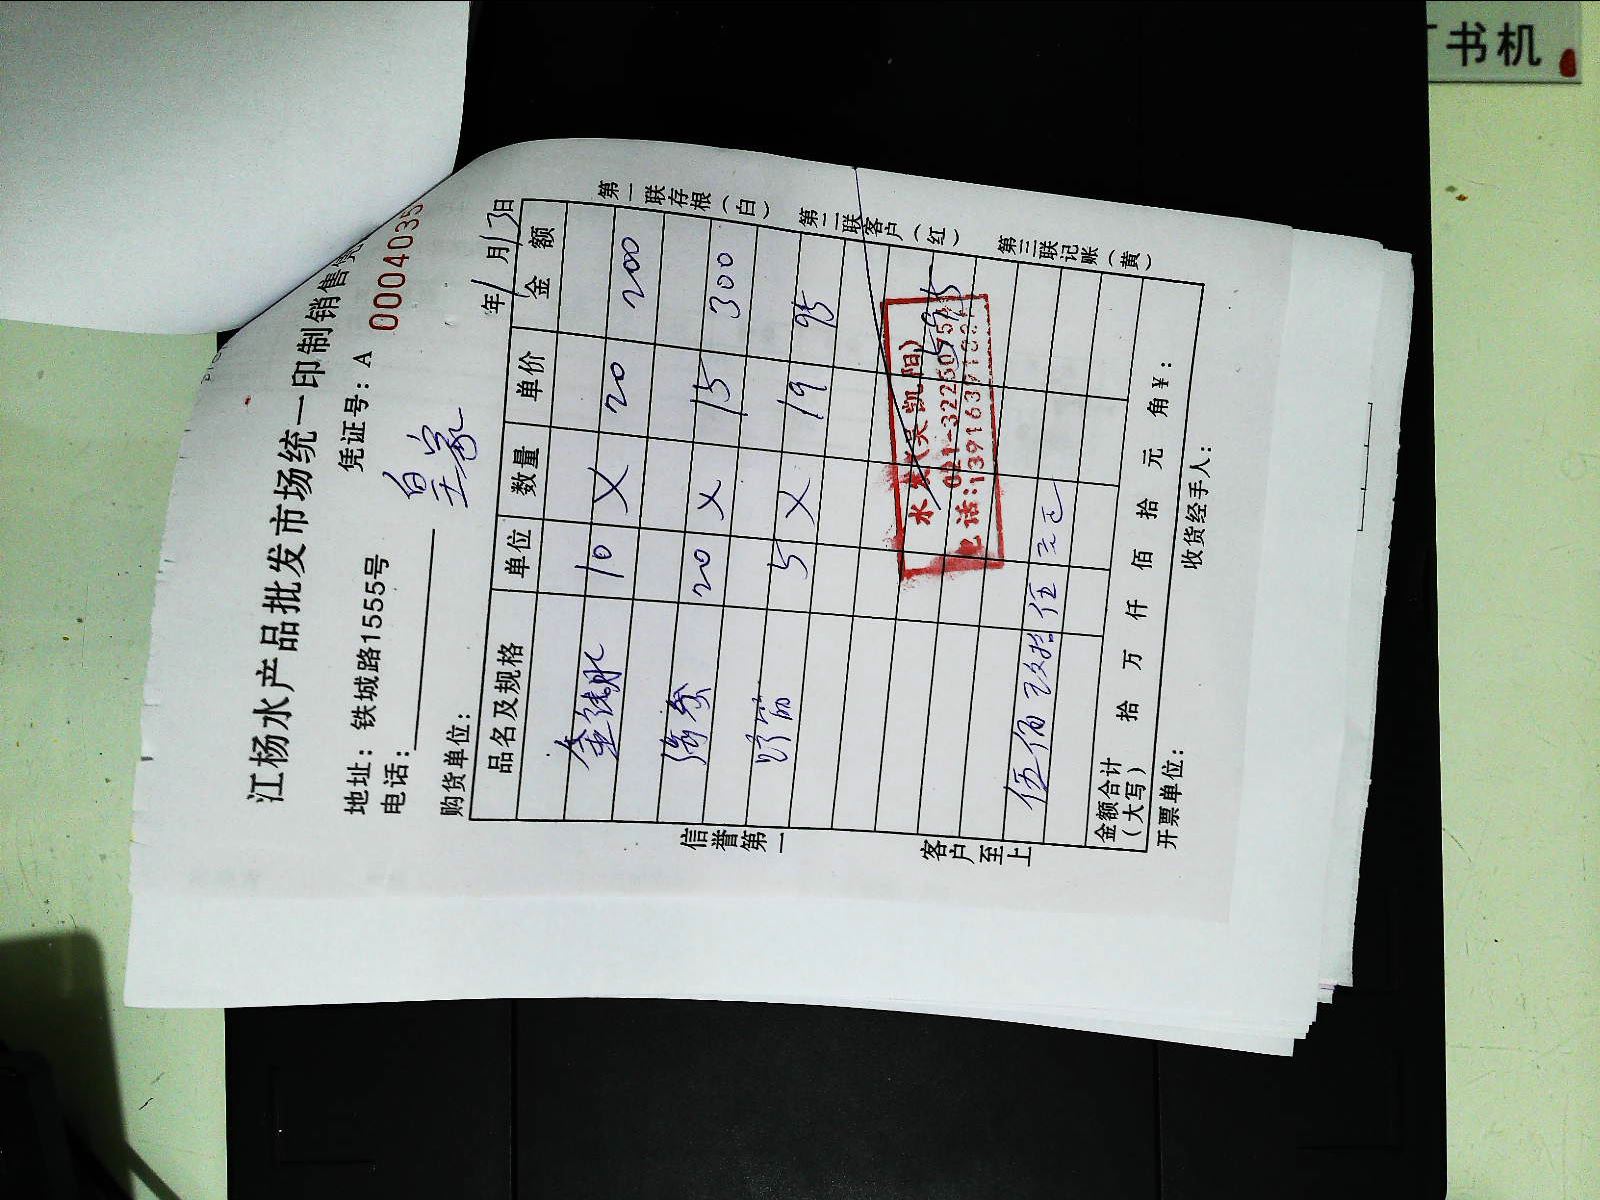 江杨水产品批发市场统一印制销售
地址：铁城路1555号 凭证号：A 0004035
电话：
购货单位： 皇家 年1月13日
品名及规格 单位 数量 单价 金额
10 × 20 200
海参 20 × 15 300
5 × 19 95
595
伍佰玖拾伍元正
金额合计（大写） 拾 万 仟 佰 拾 元 角 ¥：
开票单位： 收货经手人：
信誉第一
客户至上
第一联存根（白）
第二联客户（红）
第三联记账（黄）
水发（吴凯阳）
电话：
书机